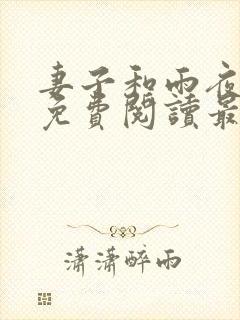 妻子和雨夜
免費閱讀最
瀟瀟醉雨